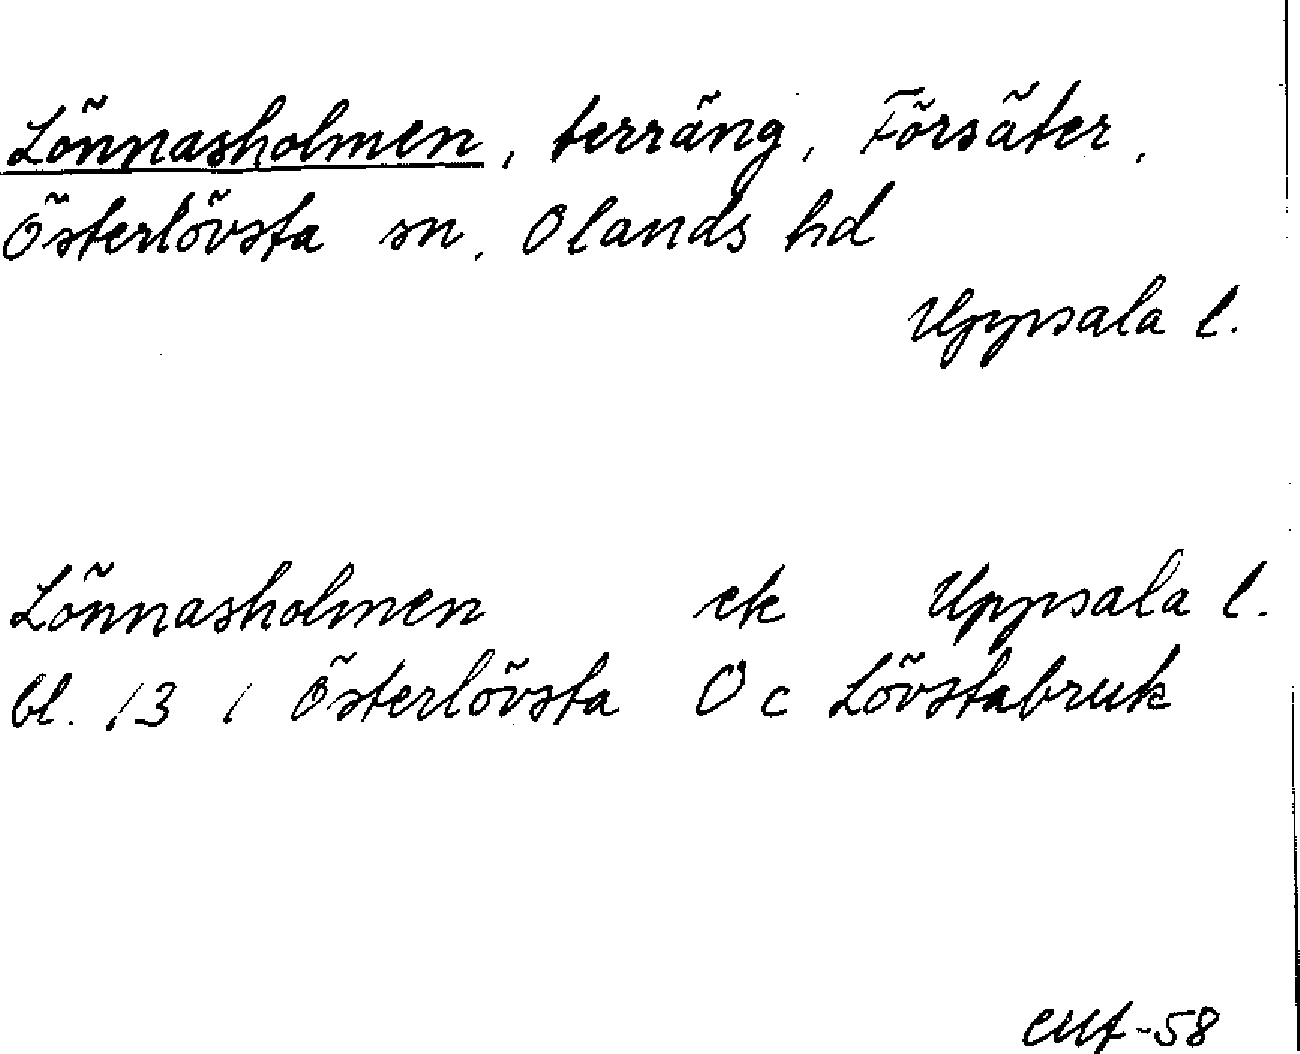 Lönnasholmen, terräng, Försäter,
Österlövsta sn, Olands hd
Uppsala l.
Lönnasholmen ek Uppsala l.
bl. 13 i Österlövsta Oc Lövstabruk
-58